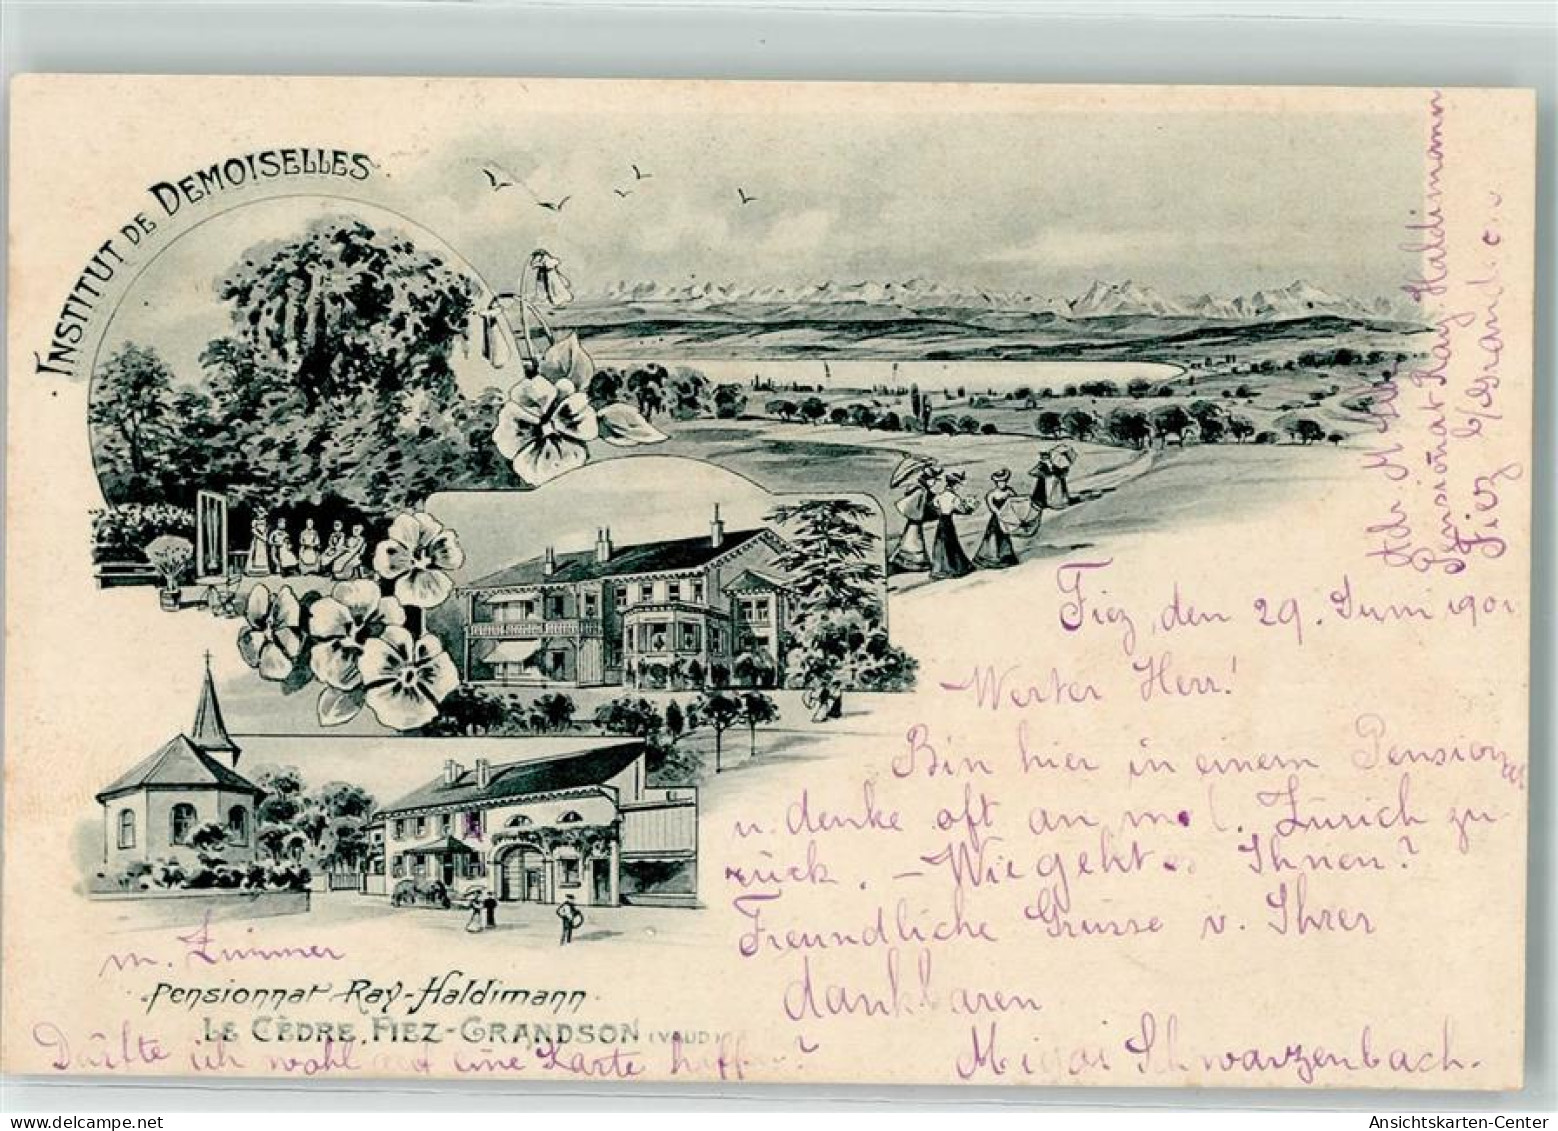 INSTITUT DE DEMOISELLES
Adr. M
Pensionnat Ray-Haldimann
Fiez b/Grandson
Fiez, den 29. Juni 1901
Werter Herr!
Bin hier in einem Pensionat
u. denke oft an m. l. Zürich zu-
rück. – Wie geht es Ihnen?
Freundliche Grüsse v. Ihrer
dankbaren
Schwarzenbach.
m. Zimmer
Pensionnat Ray-Haldimann
LE CÈDRE, FIEZ-GRANDSON (VAUD)
Dürfte ich wohl auf eine Karte hoffen?
Ansichtskarten-Center